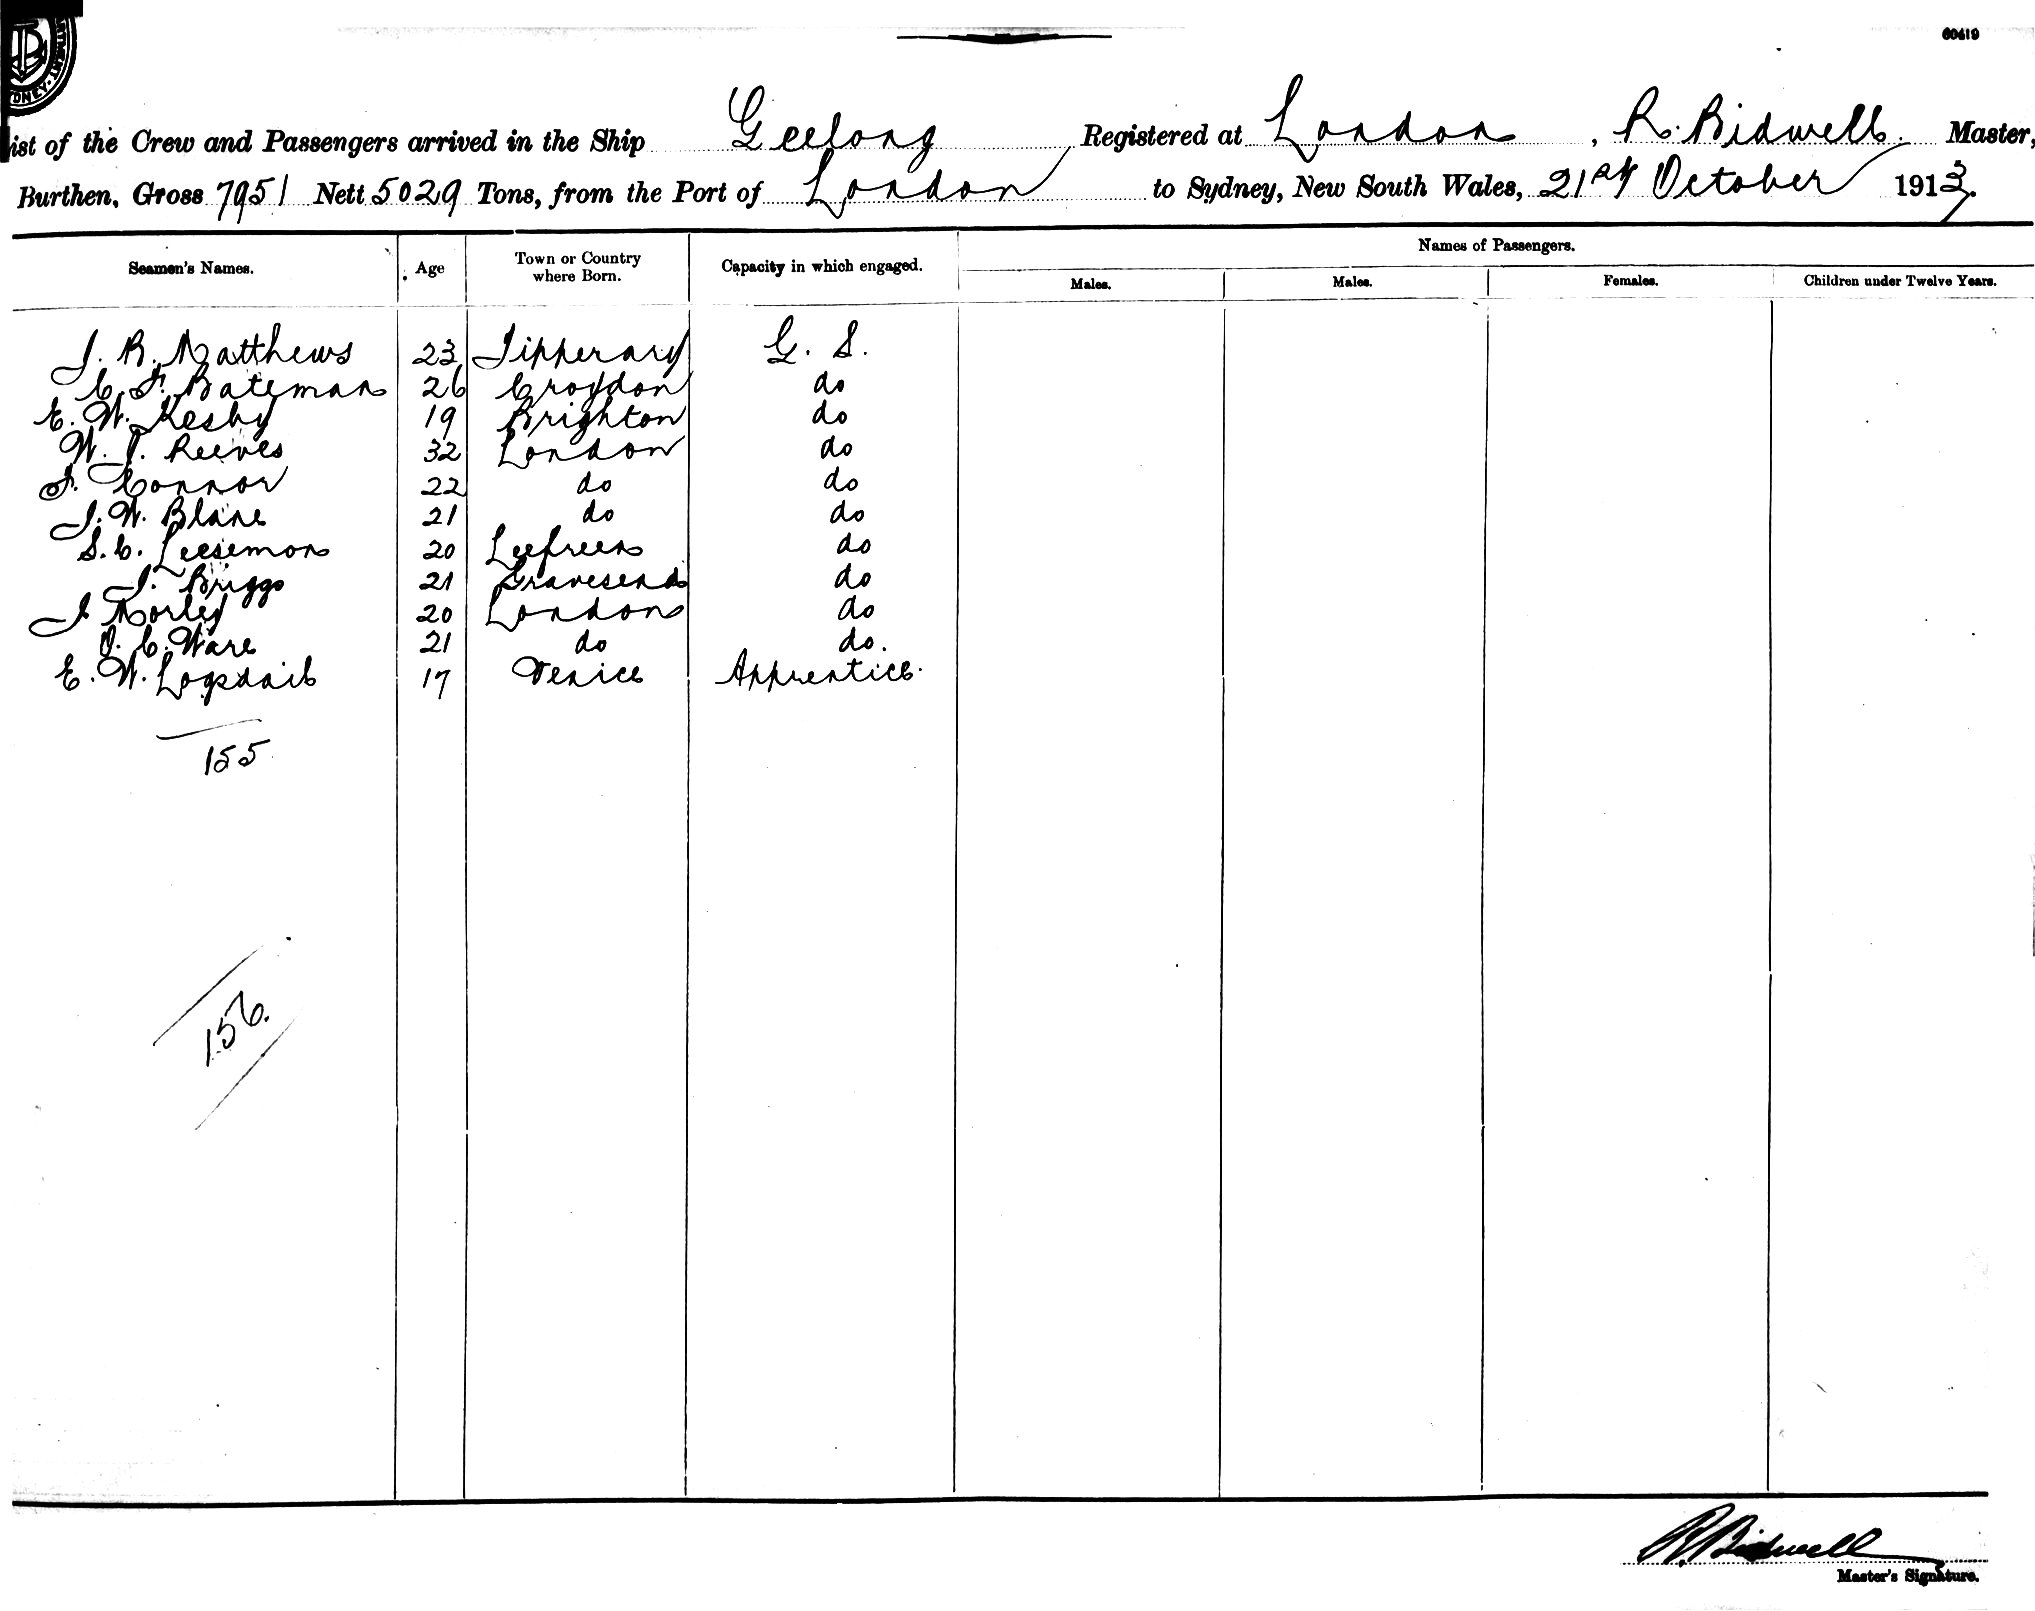 60619
ist of the Crew and Passengers arrived in the Ship Geelong Registered at London, R. Bidwell. Master,
Burthen, Gross 7951 Nett 5029 Tons, from the Port of London to Sydney, New South Wales, 21st October 1913.
Names of Passengers.
Seamen's Names. Age Town or Country where Born. Capacity in which engaged. Males. Males. Females. Children under Twelve Years.
J. R. Matthews 23 Tipperary G. S.
C. F. Bateman 26 Croydon do
E. W. Kesby 19 Brighton do
W. J. Reeves 32 London do
F. Connor 22 do do
J. W. Blane 21 do do
S. C. Leesemon 20 do
J. Briggs 21 Gravesend do
J. Morley 20 London do
O. C. Ware 21 do do.
E. W. Logsdail 17 Venice Apprentice.
155
156.
R. Bidwell
Master's Signature.